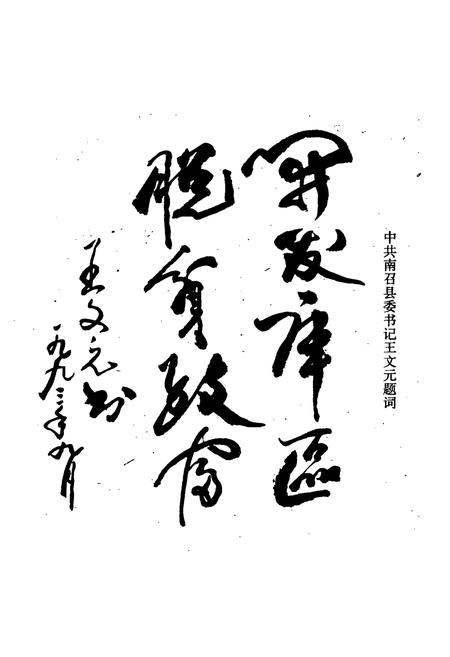 中共南召县委书记王文元题词
開发库區
脱貧致富
王文元书
一九九三年九月